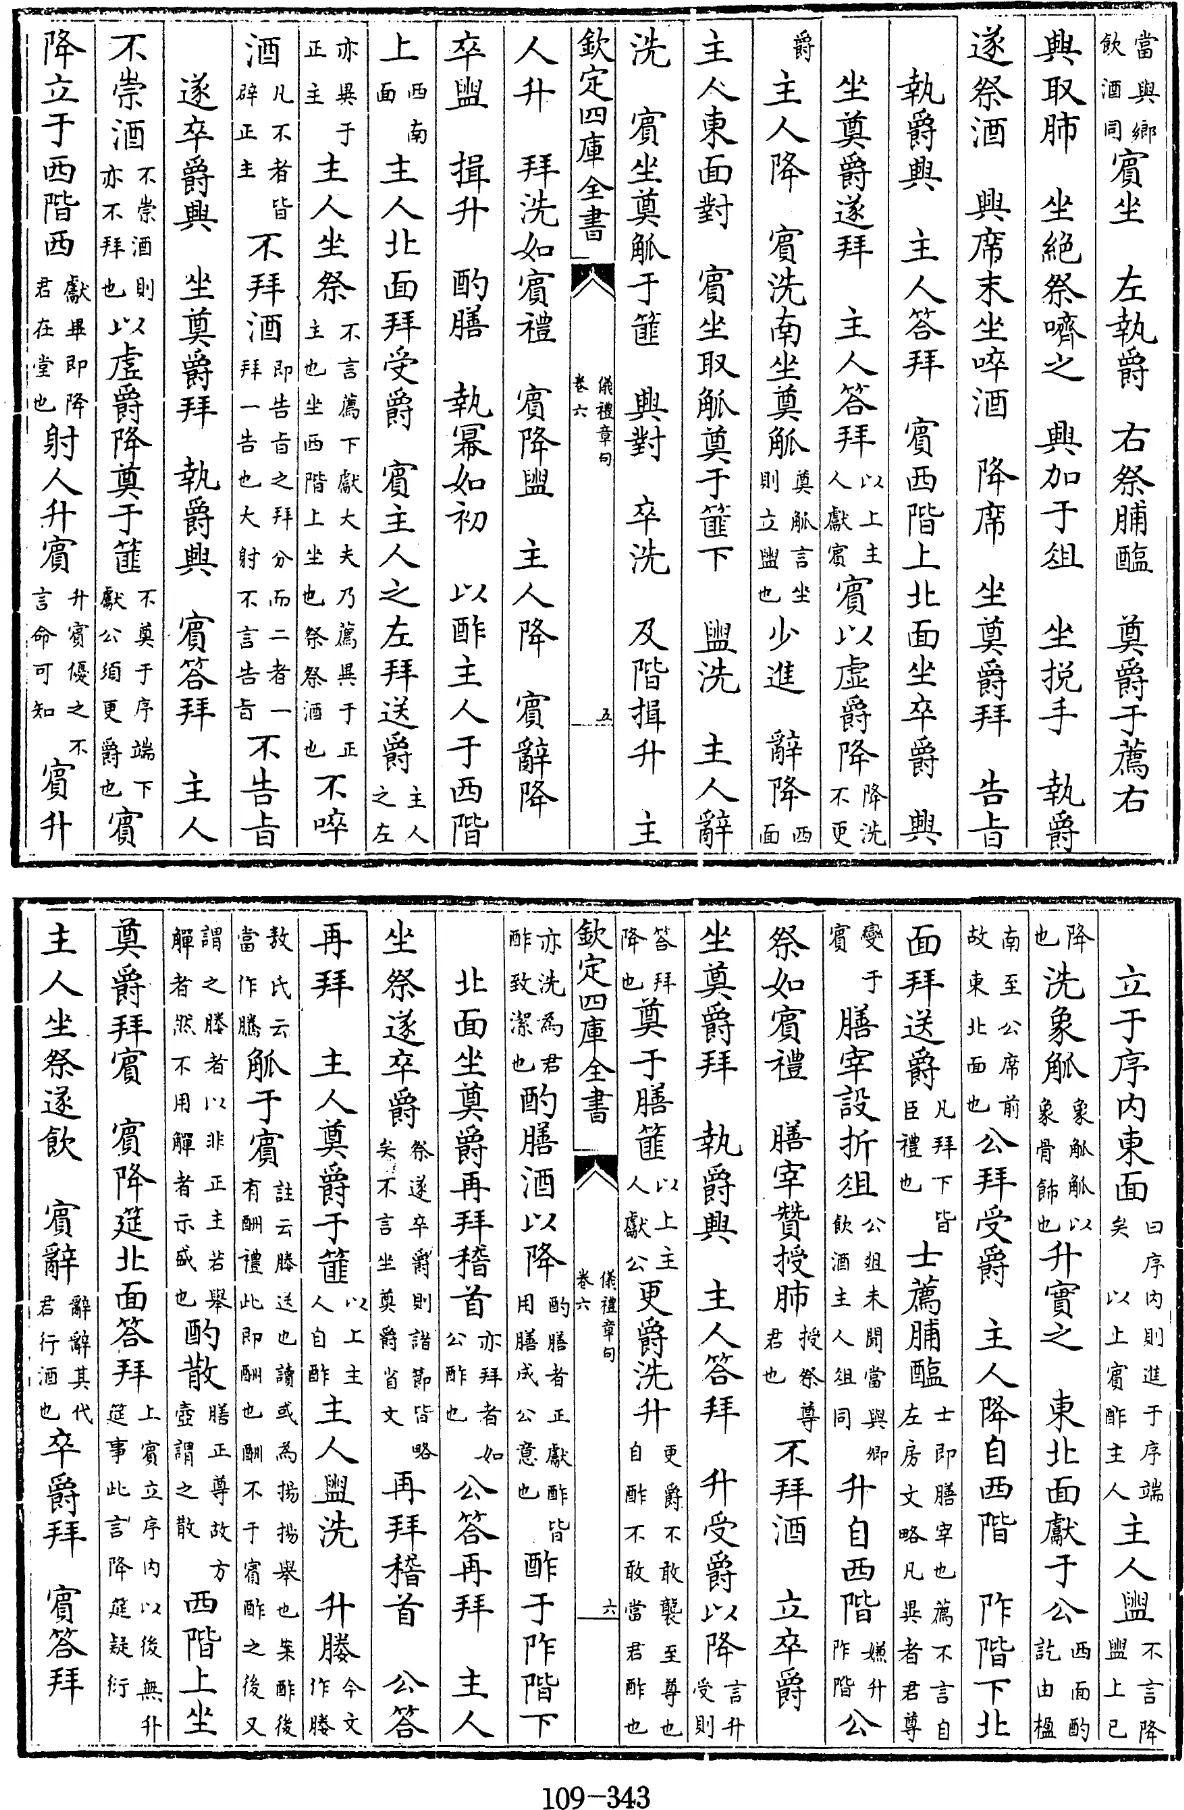 當與鄉飲酒同賓坐 左執爵 右祭脯醢 奠爵于薦右
興取肺 坐絶祭嚌之 興加于俎 坐挩手 執爵
遂祭酒 興席末坐啐酒 降席 坐奠爵拜 告旨
執爵興 主人答拜 賓西階上北面坐卒爵 興
坐奠爵遂拜 主人答拜以上主人獻賓賓以虛爵降降洗不更
爵 主人降 賓洗南坐奠觚奠觚言坐則立盥也少進 辭降西面
主人東面對 賓坐取觚奠于篚下 盥洗 主人辭
洗 賓坐奠觚于篚 興對 卒洗 及階揖升 主
欽定四庫全書 儀禮章句 卷六 五
人升 拜洗如賓禮 賓降盥 主人降 賓辭降
卒盥 揖升 酌膳 執冪如初 以酢主人于西階
上西南面 主人北面拜受爵 賓主人之左拜送爵主人之左
亦異于正主主人坐祭不言薦下獻大夫乃薦異于正主也坐西階上坐也祭祭酒也不啐
酒凡不者皆辟正主 不拜酒即告旨之拜分而二者一拜一告也大射不言告旨不告旨
遂卒爵興 坐奠爵拜 執爵興 賓答拜 主人
不崇酒不崇酒則亦不拜也以虛爵降奠于篚不奠于序端下獻公須更爵也賓
降立于西階西獻畢即降君在堂也射人升賓升賓優之不言命可知 賓升
立于序内東面曰序内則進于序端矣 以上賓酢主人主人盥不言降盥上已
降也洗象觚象觚觚以象骨飾也升實之 東北面獻于公西面酌訖由楹
南至公席前故東北面也公拜受爵 主人降自西階 阼階下北
面拜送爵凡拜下皆臣禮也 士薦脯醢士即膳宰也薦不言自左房文略凡異者君尊
變于賓 膳宰設折俎公俎未聞當與鄉飲酒主人俎同 升自西階嫌升阼階公
祭如賓禮 膳宰贊授肺授祭尊君也 不拜酒 立卒爵
坐奠爵拜 執爵興 主人答拜 升受爵以降言升受則
答拜降也奠于膳篚以上主人獻公更爵洗升更爵不敢襲至尊也自酢不敢當君酢也
欽定四庫全書 儀禮章句 卷六 六
亦洗為君酢致潔也酌膳酒以降酌膳者正獻酢皆用膳成公意也 酢于阼階下
北面坐奠爵再拜稽首亦拜者如公酢也公答再拜 主人
坐祭遂卒爵祭遂卒爵則諸節皆略矣不言坐奠爵省文 再拜稽首 公答
再拜 主人奠爵于篚以上主人自酢主人盥洗 升媵今文作媵
敖氏云當作騰觚于賓註云媵送也讀或為揚揚舉也案酢後有酬禮此即酬也酬不于賓酢之後又
謂之媵者以非正主若舉觶者然不用觶者示盛也酌散膳正尊故方壺謂之散 西階上坐
奠爵拜賓 賓降筵北面答拜上賓立序内以後無升筵事此言降筵疑衍
主人坐祭遂飲 賓辭辭辭其代君行酒也卒爵拜 賓答拜
109-343